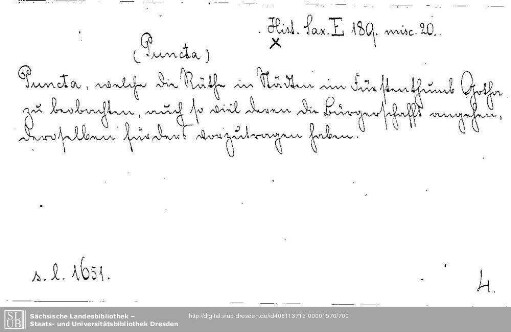 Hist. Sax. E 189. misc. 20.
x
(Puncta)
Puncta, welche die Räthe in Städten im Fürstenthumb Gotha
zu beobachten, auch so viel deren die Bürgerschafft angehen,
deroselben fürders vorzutragen haben.
s. l. 1651.
4.
SLUB
Sächsische Landesbibliothek –
Staats- und Universitätsbibliothek Dresden